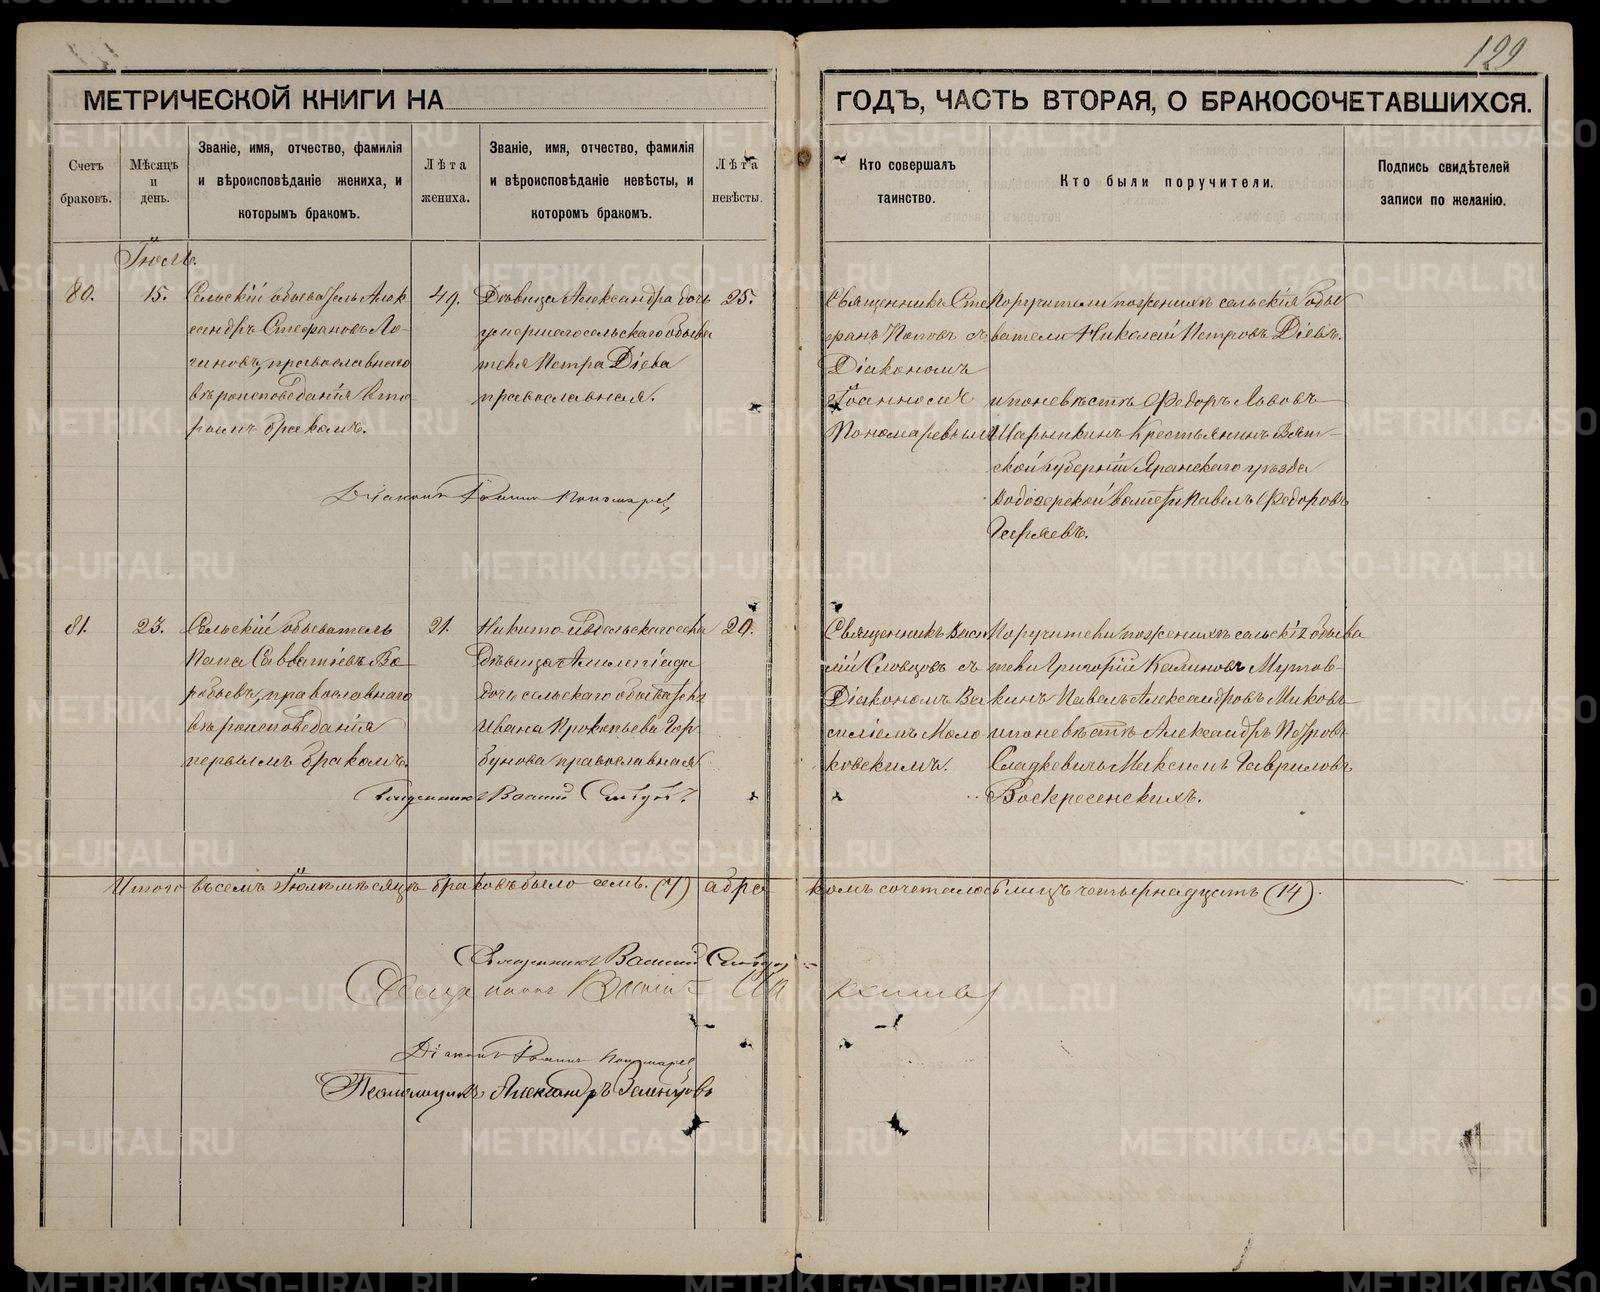 129
МЕТРИЧЕСКОЙ КНИГИ НА
ГОДЪ, ЧАСТЬ ВТОРАЯ, О БРАКОСОЧЕТАВШИХСЯ.
Счетъ браковъ.
Мѣсяцъ и день.
Званіе, имя, отчество, фамилія
и вѣроисповѣданіе жениха, и
которымъ бракомъ.
Лѣта
жениха.
Званіе, имя, отчество, фамилія
и вѣроисповѣданіе невѣсты, и
которомъ бракомъ.
Лѣта
невѣсты.
Кто совершалъ
таинство.
Кто были поручители.
Подпись свидѣтелей
записи по желанію.
Іюль.
80.
15.
Сельскій обыватель Алек
сандръ Стефановъ Ло-
гиновъ, православнаго
вѣроисповеданія вто
рымъ бракомъ.
49.
Дѣвица Александра дочь
умершаго сельскаго обыва
теля Петра Діева
православная.
25.
Священникъ Сте
фанъ Поповъ съ
Діакономъ
Іоанномъ
Пономаревымъ
Поручители по женихѣ сельскія обы
ватели Николай Петровъ Діевъ.
и по невѣстѣ Федоръ Львовъ
Шарыпкинъ Крестьянинъ Вят-
ской губерніи Яранскаго уѣзда
волости Павелъ Федоровъ
Діаконъ Іоаннъ Пономарев
81.
23.
Сельскій обыватель
Папа Савватіевъ Во-
робьевъ, православнаго
вѣроисповеданія
первымъ бракомъ.
21.
Никито Ивдельскаго села
Дѣвица
дочь сельскаго обывателя
Ивана Прокопьева Гор
бунова православная
20.
Священникъ Васи
лій Словцовъ съ
Діакономъ Ва
силіемъ Моло
ковскимъ.
Поручители по женихѣ сельскіе обыва
тели Григорій Калиновъ Мутов-
кинъ Павелъ Александровъ
и по невѣстѣ Александръ Петровъ
Сладкевичъ Максимъ Гавриловъ
Воскресенскихъ.
Священникъ Василій Словцов
Итого въ семъ Іюлѣ мѣсяцѣ браковъ было семь. (7) а бра
комъ сочеталось лицъ четырнадцать (14).
Священникъ Василій Словцов
Діаконъ Іоаннъ Пономарев
Псаломщикъ Александръ Земляновъ
METRIKI.GASO-URAL.RU